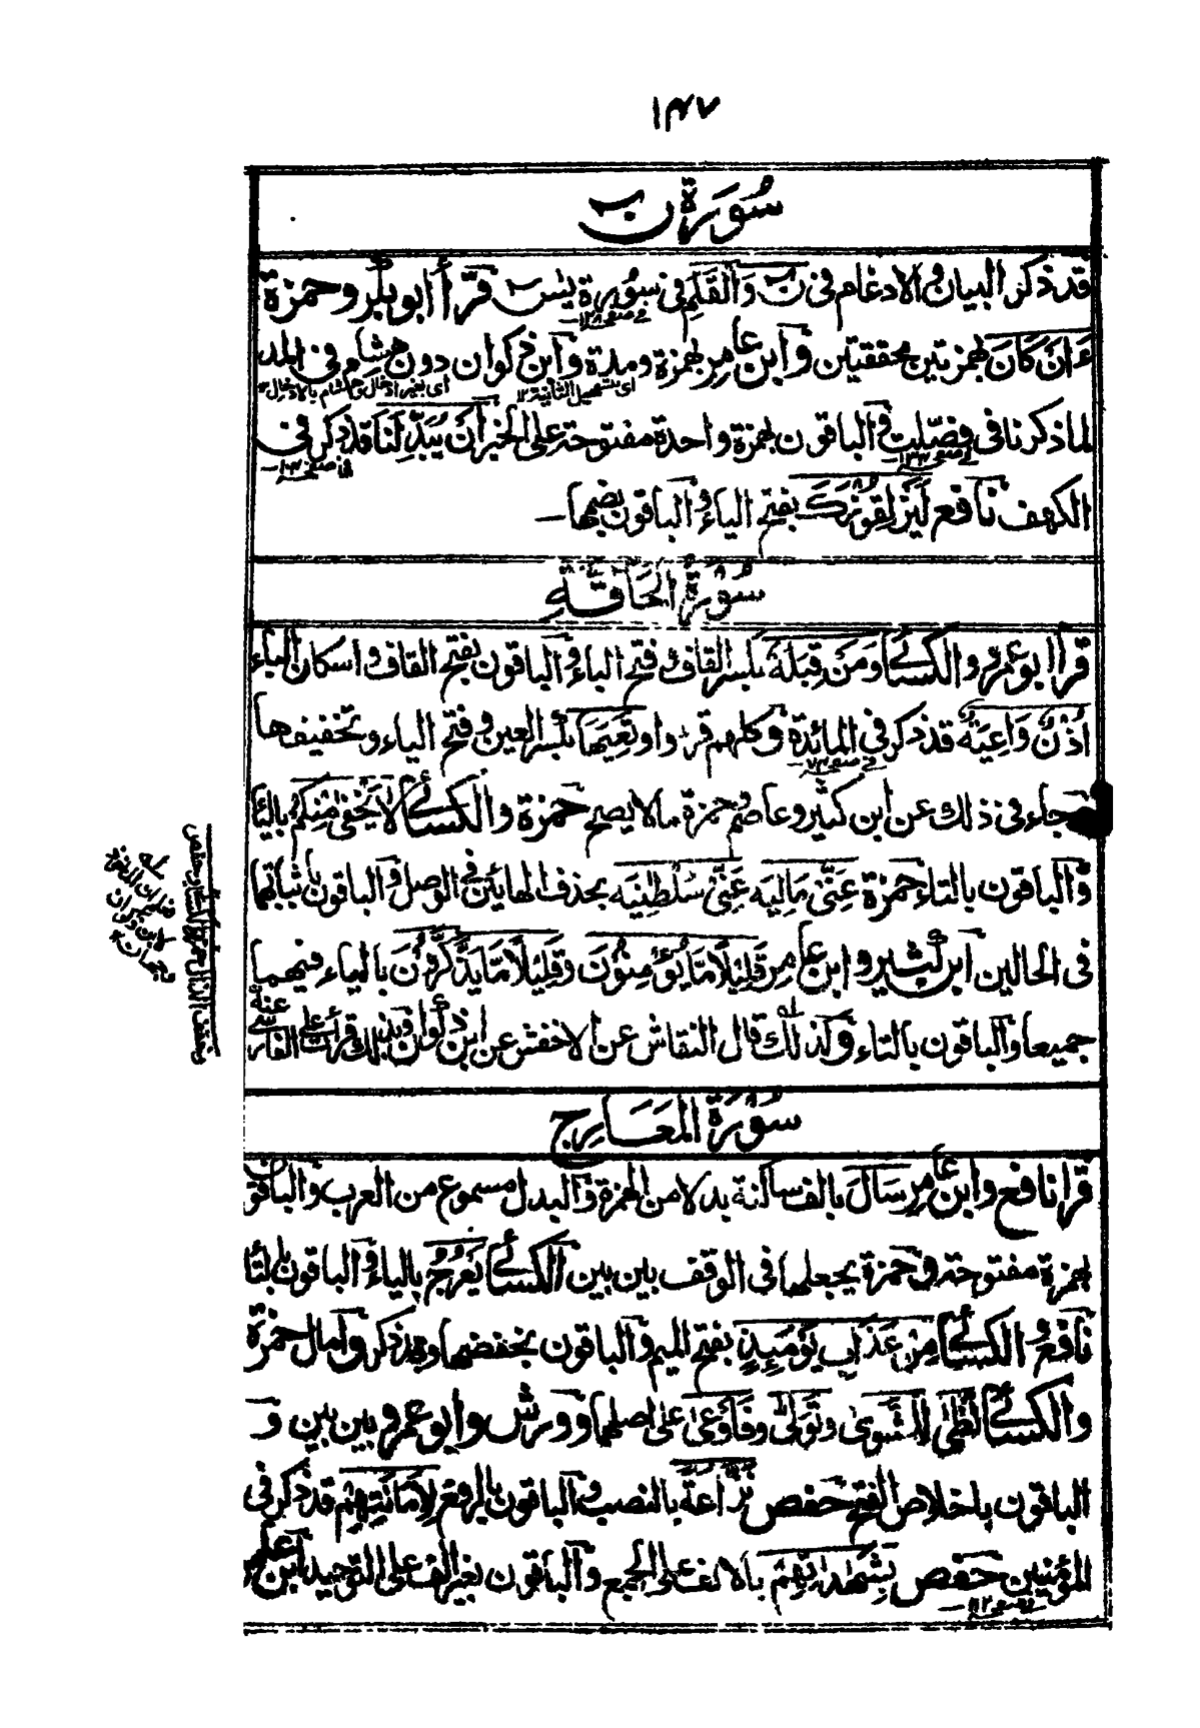 ١٤٧
سُورَةُ نٓ
قد ذكر البيان والادغام فى نٓ وَالْقَلَمِ فى سورة يٰسٓ قرأ ابو بكر وحمزة
ءَاَنْ كَانَ بهمزتين محققتين وابن عامر بهمزة ومدة وابن ذكوان دون هشام فى المد
اى بتسهيل الثانية ١٢ اى بغير ادخال وهشام بالادخال ١٢
لما ذكرنا فى فصّلت والباقون بهمزة واحدة مفتوحة على الخبر اَنْ يُّبْدِلَنَا قد ذكر فى
الكهف نافع لَيَزْلِقُوْنَكَ بفتح الياء والباقون بضمها ــ
سُورَةُ الْحَاقَّةِ
قرأ ابو عمرو والكسائى وَمَنْ قِبَلَهٗ بكسر القاف وفتح الباء والباقون بفتح القاف واسكان الباء
اُذُنٌ وَّاعِيَةٌ قد ذكر فى المائدة وكلهم قرءوا وتَعِيَهَا بكسر العين وفتح الياء وتخفيفها
جاء فى ذلك عن ابن كثير وعاصم وحمزة ما لا يصح حمزة والكسائى لَا يَخْفٰى مِنْكُمْ بالياء
والباقون بالتاء حمزة عَنِّىْ مَالِيَه عَنِّىْ سُلْطٰنِيَه بحذف الهائين فى الوصل والباقون باثباتهما
فى الحالين ابن كثير وابن عامر قَلِيْلًا مَّا يُؤْمِنُوْنَ وقَلِيْلًا مَّا يَذَّكَّرُوْنَ بالياء فيهما
جميعا والباقون بالتاء وكذلك قال النقاش عن الاخفش عن ابن ذكوان وبذلك قرأت على الفارسى عنه
سُورَةُ الْمَعَارِجِ
قرأ نافع وابن عامر سَالَ بالف ساكنة بدلا من الهمزة والبدل مسموع من العرب والباقون
بهمزة مفتوحة وحمزة يجعلها فى الوقف بين بين الكسائى يَعْرُجُ بالياء والباقون بالتاء
نافع والكسائى مِنْ عَذَابِ يَوْمَئِذٍ بفتح الميم والباقون بخفضها وقد ذكر وامال حمزة
والكسائى لَظٰى لِلشَّوٰى وتَوَلّٰى وفَاَوْعٰى على اصلهما وورش وابو عمرو بين بين و
الباقون باخلاص الفتح حفص نَزَّاعَةً بالنصب والباقون بالرفع لِاَمٰنٰتِهِمْ قد ذكر فى
المؤمنين حفص بِشَهٰدٰتِهِمْ بالالف على الجمع والباقون بغير الف على التوحيد ابن عامر